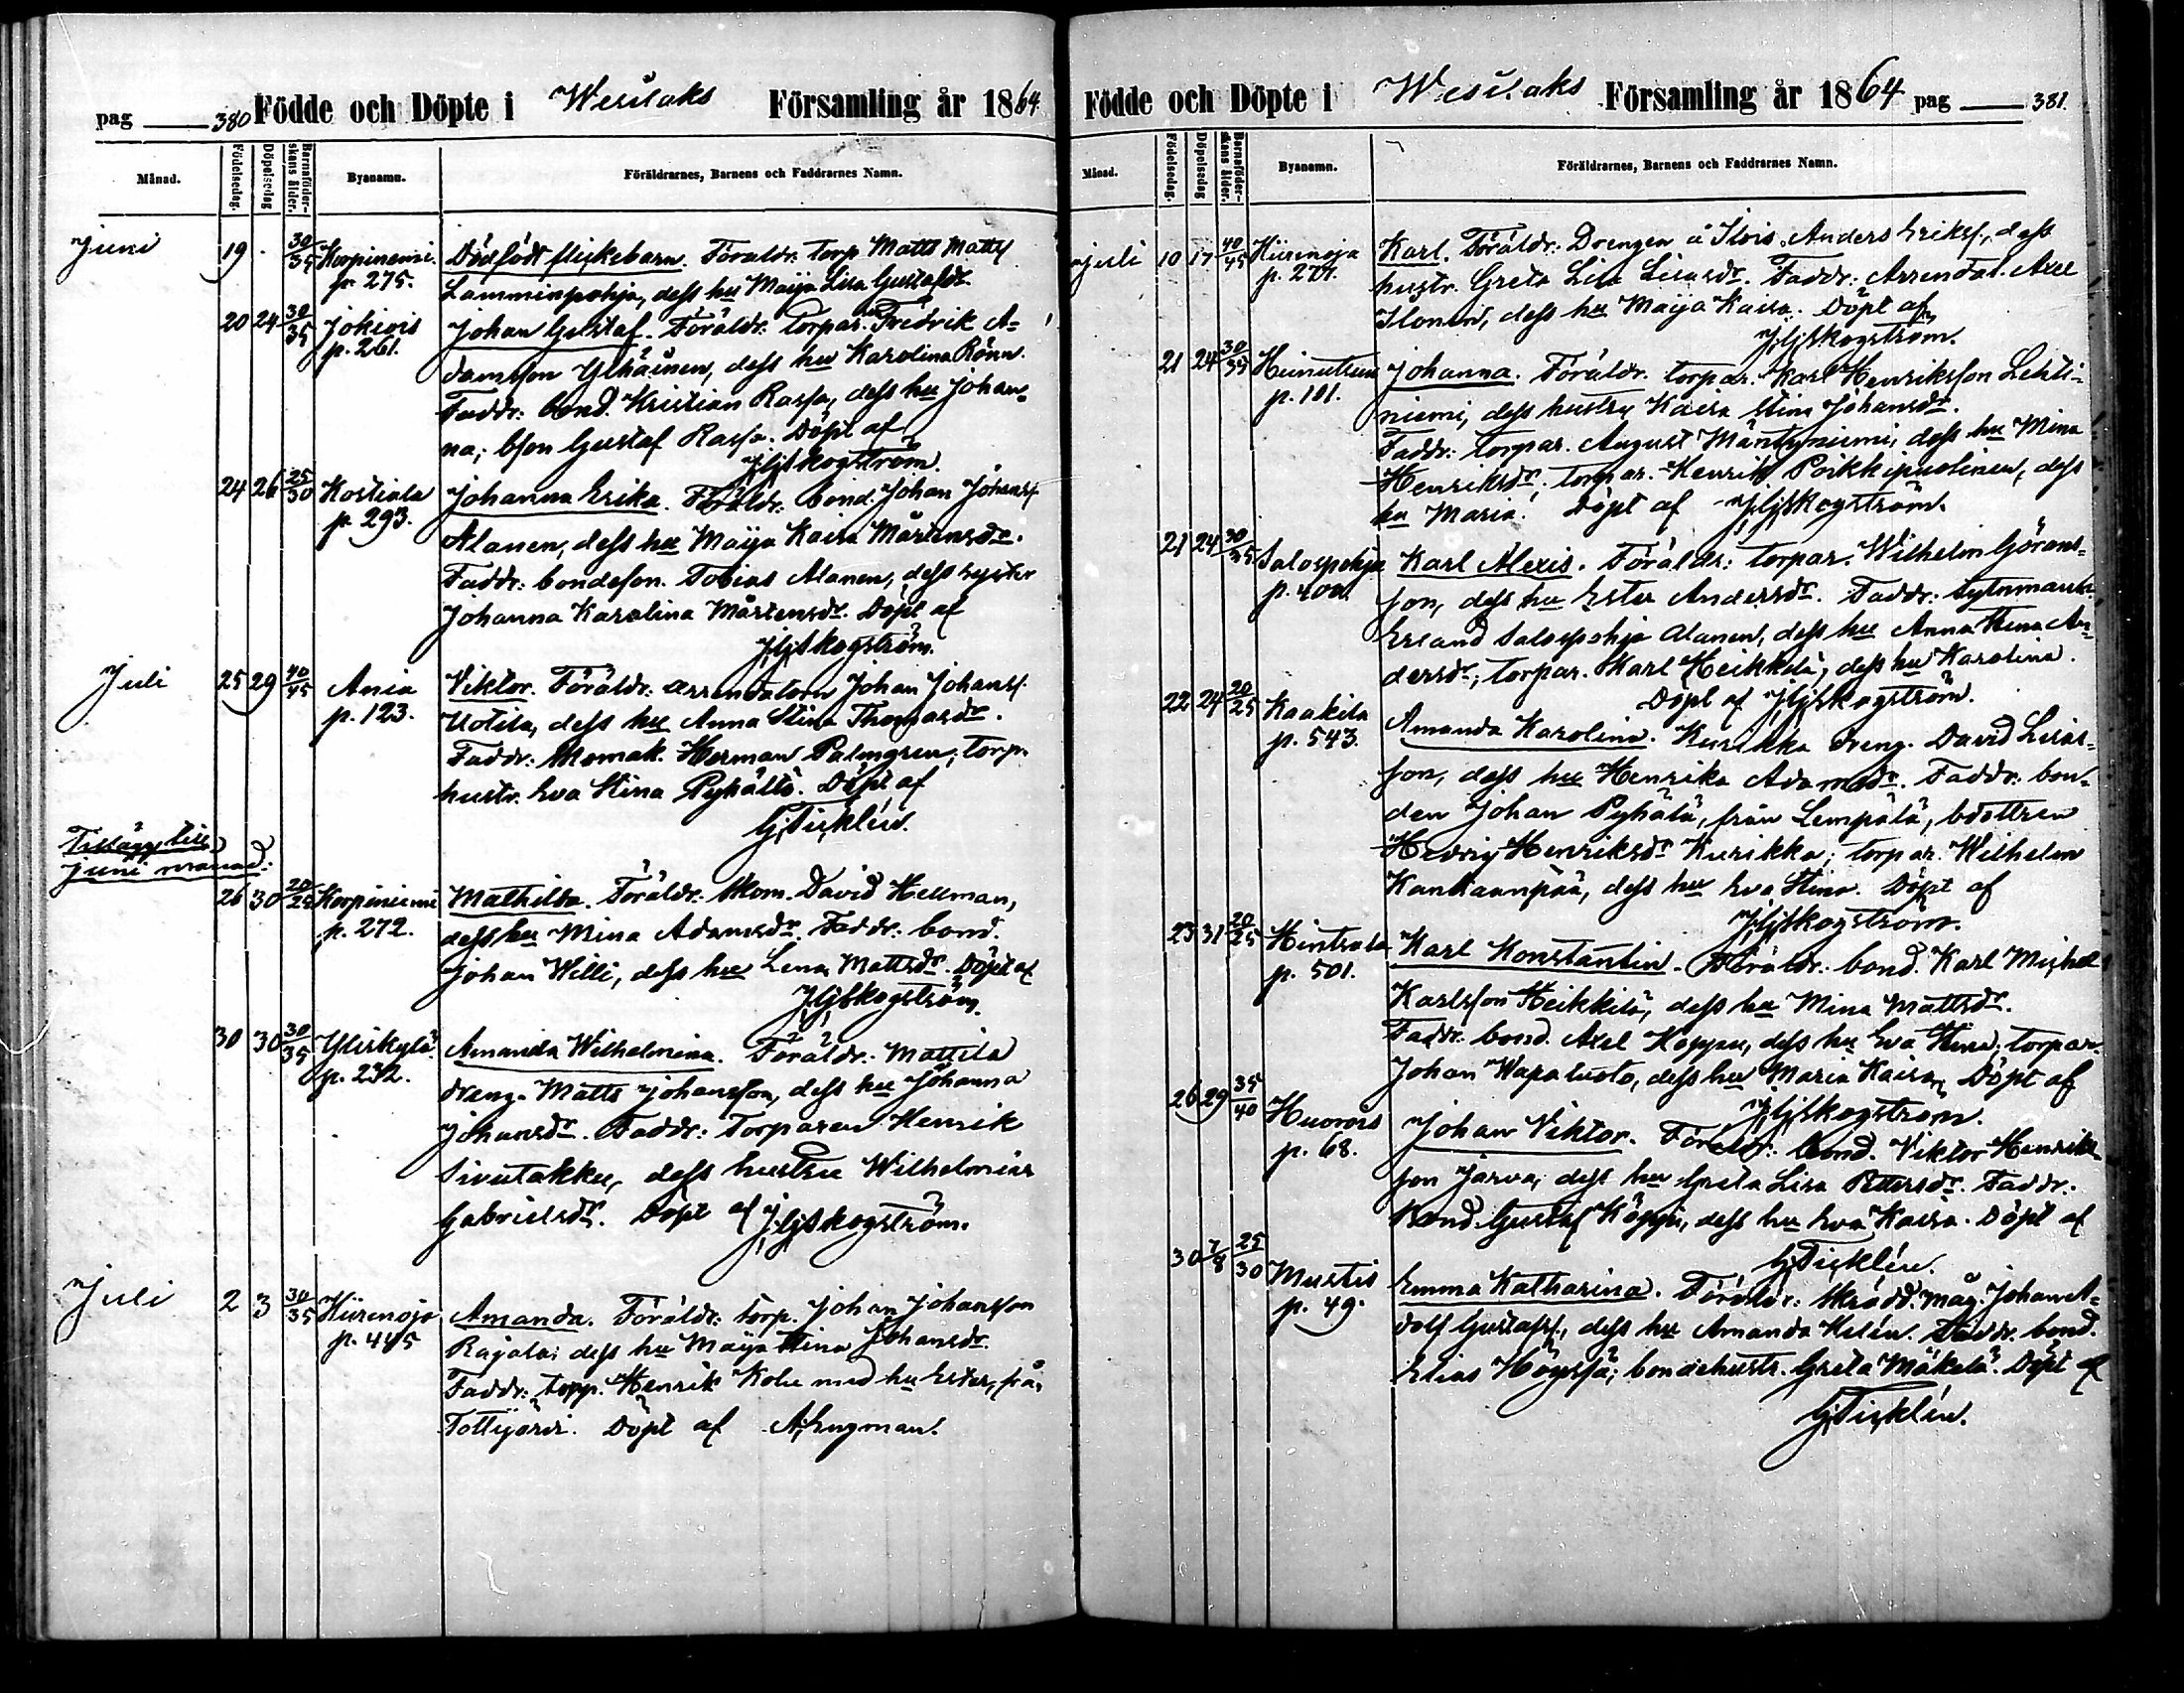 pag 380 Födde och Döpte i Wesilaks Församling år 1864
Månad. Födelsedag. Döpelsedag Barnaföderskans ålder. Byanamn. Föräldrarnes, Barnens och Faddrarnes Namn.
Juni 19 . 30/35 Korpiniemi p. 275. Dödfödt flickebarn. Föräldr. torp Matts Mattsf
Lamminpohja, dess hu Maija Lisa Gustafsdr.
20 24 30/35 Jokiois p. 261. Johan Gustaf. Föräldr. Torpar. Fredrik A-
damsson Yhäinen, dess hu Karolina Rönn.
Faddr: bond. Kristian Rassa, dess hu Johan-
na; bson Gustaf Rassa. Döpt af
JGSkogström.
24 26 25/30 Kostiala p. 293. Johanna Erika. Föräldr. bond. Johan Johansf.
Alanen, dess hu Maija Kaisa Mårtensdr.
Faddr: bondeson. Tobias Alanen, dess syster
Johanna Karolina Mårtensdr. Döpt af
JGSkogström.
Juli 25 29 40/45 Ania p. 123. Viktor. Föräldr: arrendatorn Johan Johansf.
Uotila, dess hu Anna Stina Thomasdr.
Faddr: Skomak. Herman Palmgren; torp.
hustr. Eva Stina Pyhältö. Döpt af
GTicklén.
Tillägg till
juni månad:
26 30 20/25 Korpiniemi p. 272. Mathilda. Föräldr: Skom. David Hellman,
dess hu Mina Adamsdr. Faddr: bond.
Johan Willi, dess hu Lena Mattsdr. Döpt af
JGSkogström.
30 30 30/35 Yliskylä p. 232. Amanda Wilhelmina. Föräldr: Mattila
dräng. Matts Johansson, dess hu Johanna
Johansdr. Faddr: Torparen Henrik
Sivutakku, dess hustru Wilhelmina
Gabrielsdr. Döpt af JGSkogström.
Juli 2 3 30/35 Hiirenoja p. 445 Amanda. Föräldr: torp. Johan Johansson
Rajala; dess hu Maija Stina Johansdr.
Faddr: torp. Henrik Kolu med hu Ester, från
Tottijärvi. Döpt af AEngman.
Födde och Döpte i Wesilaks Församling år 1864 pag 381.
Månad. Födelsedag. Döpelsedag Barnaföderskans ålder. Byanamn. Föräldrarnes, Barnens och Faddrarnes Namn.
Juli 10 17 40/45 Hiirenoja p. 277. Karl. Föräldr: Drengen å Ilois. Anders Eriksf., dess
hustr. Greta Lisa Lisasdr. Faddr: Arrendat. Axel
Ilonen, dess hu Maija Kaisa. Döpt af
JGSkogström.
21 24 30/35 Heinutsuo p. 181. Johanna. Föräldr. torpar. Karl Henriksson Lehti-
niemi, dess hustru Kaisa Stina Johansdr.
Faddr: torpar. August Mäntyniemi, dess hu Mina
Henriksdr; torpar. Henrik Poikkipuolinen, dess
hu Maria. Döpt af JGSkogström.
21 24 30/35 Salospohja p. 400. Karl Alexis. Föräldr: torpar. Wilhelm Görans-
son, dess hu Ester Andersdr. Faddr: Sytnmank
Erland Salospohja Alanen, dess hu Anna Stina An-
dersdr; torpar. Karl Heikkilä, dess hu Karolina.
Döpt af JGSkogström.
22 24 20/25 Kaakila p. 543. Amanda Karolina. Kurikka dreng. David Lisas-
son, dess hu Henrika Adamsdr. Faddr: bon-
den Johan Pyhälä, från Lempälä, bdottren
Hedvig Henriksdr Kurikka; torpar. Wilhelm
Kankaanpää, dess hu Eva Stina. Döpt af
JGSkogström.
23 31 20/25 Hintsala p. 501. Karl Konstantin. Föräldr: bond. Karl Michel
Karlsson Heikkilä, dess hu Mina Mattsdr.
Faddr. bond. Axel Hoppu, dess hu Eva Stina; torpar.
Johan Wapaluoto, dess hu Maria Kaisa, Döpt af
JGSkogström.
26 29 35/40 Huovois p. 68. Johan Viktor. Föräldr: bond. Viktor Henriks-
son Jarva, dess hu Greta Lisa Pettersdr. Faddr:
Bond. Gustaf Köppi, dess hu Eva Kaisa. Döpt af
GTicklén.
30 7/8 25/30 Mustis p. 49. Emma Katharina. Föräldr: Skrädd. måg. Johan A-
dolf Gustafsf., dess hu Amanda Helén. Faddr. bond.
Elias Högssä; bondehustr. Greta Mäkelä. Döpt af
GTicklén.